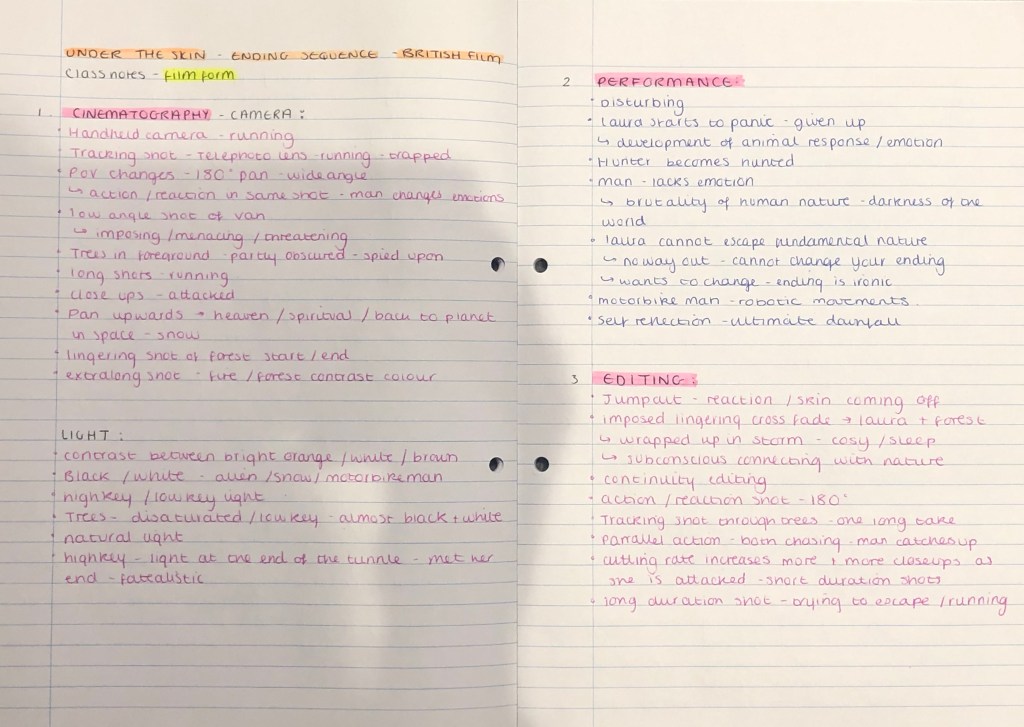 UNDER THE SKIN - ENDING SEQUENCE - BRITISH FILM
Class notes - film form
1. CINEMATOGRAPHY - CAMERA:
• Handheld camera - running
• Tracking shot - Telephoto lens - running - trapped
• POV changes - 180° pan - wide angle
↳ action/reaction in same shot - man changes emotions
• low angle shot of van
↳ imposing/menacing/threatening
• Trees in foreground - partly obscured - spied upon
• long shots - running
• close ups - attacked
• Pan upwards → heaven/spiritual/back to planet
in space - snow
• lingering shot of forest start/end
• extralong shot - fire/forest contrast colour
LIGHT:
• contrast between bright orange/white/brown
• Black/white - alien/snow/motorbike man
• high key/low key light
• Trees - disaturated/low key - almost black + white
• natural light
• highkey - light at the end of the tunnle - met her
end - fatealistic
2 PERFORMANCE:
• Disturbing
• laura starts to panic - given up
↳ development of animal response/emotion
• Hunter becomes hunted
• man - lacks emotion
↳ brutality of human nature - darkness of the
world
• laura cannot escape fundamental nature
↳ no way out - cannot change your ending
↳ wants to change - ending is ironic
• motorbike man - robotic movements.
• self reflection - ultimate downfall
3 EDITING:
• Jumpcut - reaction/skin coming off
• imposed lingering cross fade → laura + forest
↳ wrapped up in storm - cosy/sleep
↳ subconscious connecting with nature
• continuity editing
• action/reaction shot - 180°
• Tracking shot through trees - one long take
• Parrallel action - both chasing - man catches up
• cutting rate increases more + more closeups as
she is attacked - short duration shots
• long duration shot - trying to escape/running